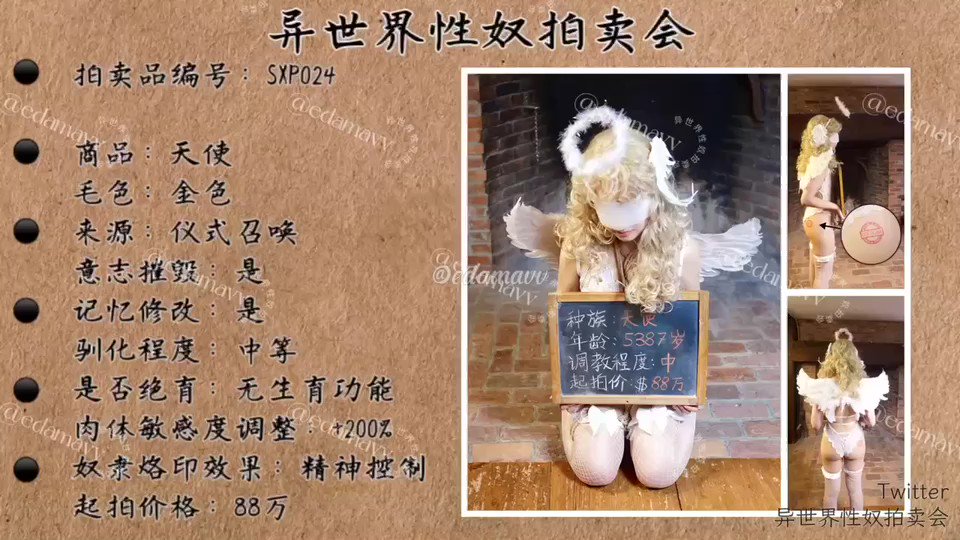 异世界性奴拍卖会
拍卖品编号：SXP024
商品：天使
毛色：金色
来源：仪式召唤
意志摧毁：是
记忆修改：是
驯化程度：中等
是否绝育：无生育功能
肉体敏感度调整：+200%
奴隶烙印效果：精神控制
起拍价格：88万
种族：天使
年龄：5387岁
调教程度：中
起拍价：$88万
@edamavv
异世界性奴拍卖会
Twitter
异世界性奴拍卖会